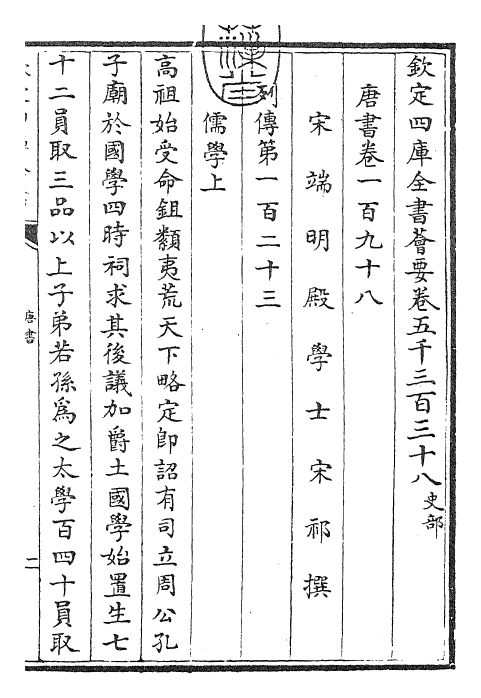 欽定四庫全書薈要卷五千三百三十八史部
唐書卷一百九十八
宋端明殿學士宋祁撰
列傳第一百二十三
儒學上
高祖始受命鉏纇夷荒天下略定卽詔有司立周公孔
子廟於國學四時祠求其後議加爵土國學始置生七
十二員取三品以上子弟若孫爲之太學百四十員取
唐書